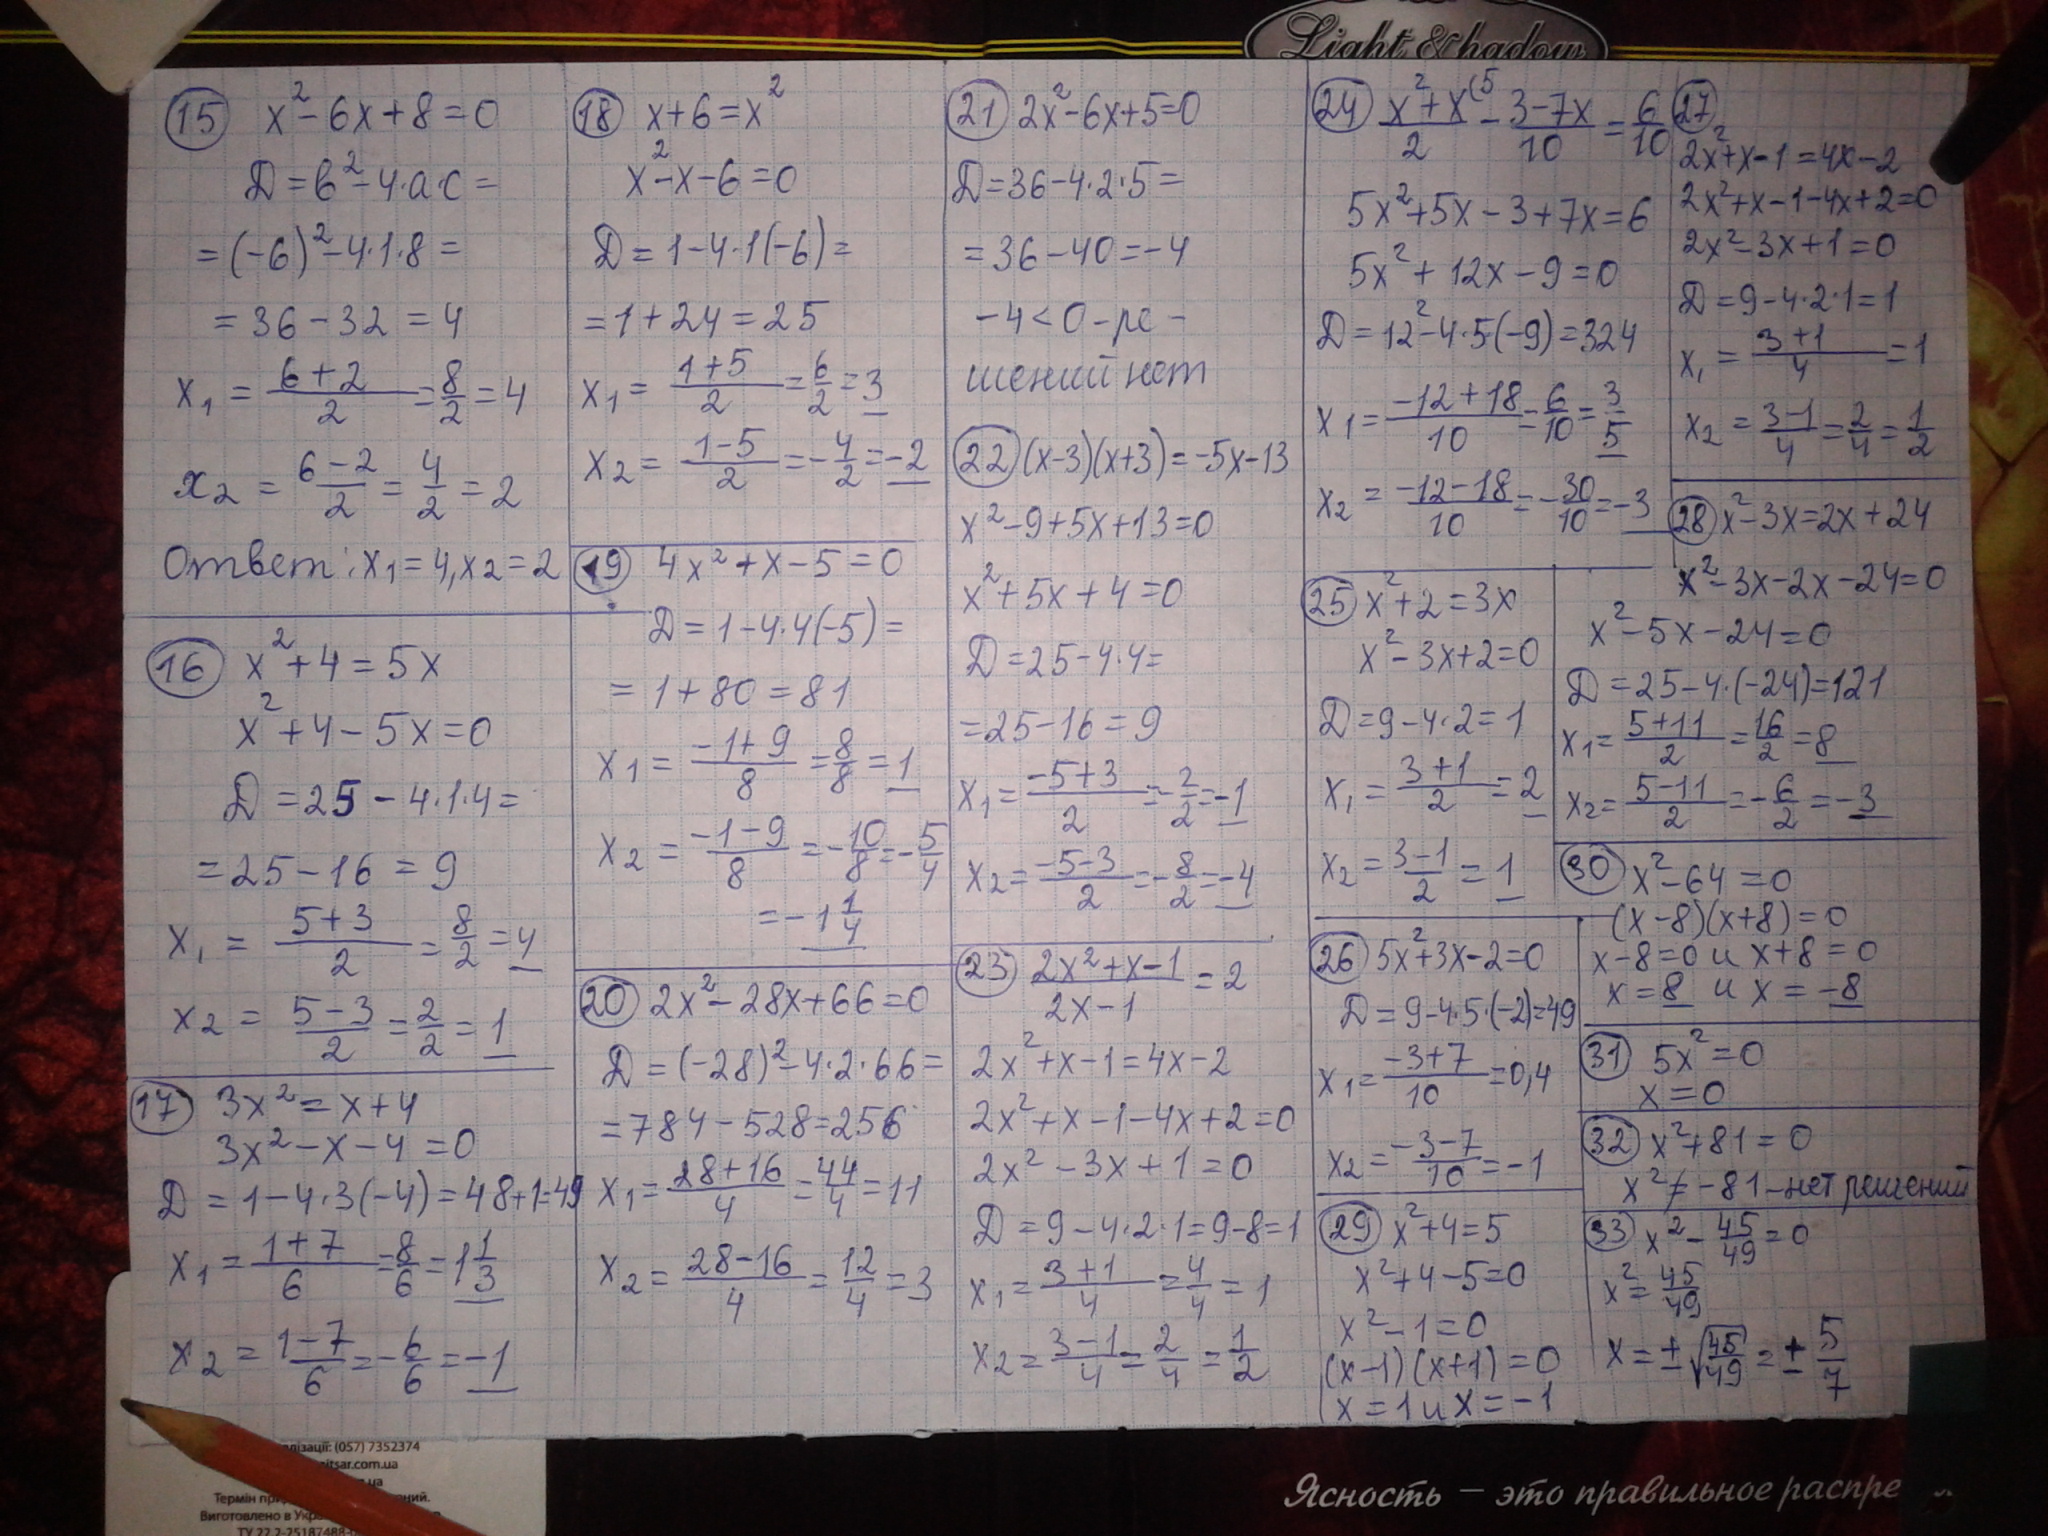 Light & Shadow
15 x²-6x+8=0
Д=в²-4·a·c=
=(-6)²-4·1·8=
=36-32=4
x₁=(6+2)/2=8/2=4
x₂=(6-2)/2=4/2=2
Ответ: x₁=4, x₂=2
16 x²+4=5x
x²+4-5x=0
Д=25-4·1·4=
=25-16=9
x₁=(5+3)/2=8/2=4
x₂=(5-3)/2=2/2=1
17 3x²=x+4
3x²-x-4=0
Д=1-4·3(-4)=48+1=49
x₁=(1+7)/6=8/6=1 1/3
x₂=(1-7)/6=-6/6=-1
18 x+6=x²
x²-x-6=0
Д=1-4·1(-6)=
=1+24=25
x₁=(1+5)/2=6/2=3
x₂=(1-5)/2=-4/2=-2
19 4x²+x-5=0
Д=1-4·4(-5)=
=1+80=81
x₁=(-1+9)/8=8/8=1
x₂=(-1-9)/8=-10/8=-5/4
=-1 1/4
20 2x²-28x+66=0
Д=(-28)²-4·2·66=
=784-528=256
x₁=(28+16)/4=44/4=11
x₂=(28-16)/4=12/4=3
21 2x²-6x+5=0
Д=36-4·2·5=
=36-40=-4
-4<0-ре-
шений нет
22 (x-3)(x+3)=-5x-13
x²-9+5x+13=0
x²+5x+4=0
Д=25-4·4=
=25-16=9
x₁=(-5+3)/2=-2/2=-1
x₂=(-5-3)/2=-8/2=-4
23 (2x²+x-1)/(2x-1)=2
2x²+x-1=4x-2
2x²+x-1-4x+2=0
2x²-3x+1=0
Д=9-4·2·1=9-8=1
x₁=(3+1)/4=4/4=1
x₂=(3-1)/4=2/4=1/2
24 (x²+x)/2 (5 - (3-7x)/10=6/10
5x²+5x-3+7x=6
5x²+12x-9=0
Д=12²-4·5·(-9)=324
x₁=(-12+18)/10=6/10=3/5
x₂=(-12-18)/10=-30/10=-3
25 x²+2=3x
x²-3x+2=0
Д=9-4·2=1
x₁=(3+1)/2=2
x₂=(3-1)/2=1
26 5x²+3x-2=0
Д=9-4·5·(-2)=49
x₁=(-3+7)/10=0,4
x₂=(-3-7)/10=-1
29 x²+4=5
x²+4-5=0
x²-1=0
(x-1)(x+1)=0
x=1 и x=-1
27
2x²+x-1=4x-2
2x²+x-1-4x+2=0
2x²-3x+1=0
Д=9-4·2·1=1
x₁=(3+1)/4=1
x₂=(3-1)/4=2/4=1/2
28 x²-3x=2x+24
x²-3x-2x-24=0
x²-5x-24=0
Д=25-4·(-24)=121
x₁=(5+11)/2=16/2=8
x₂=(5-11)/2=-6/2=-3
30 x²-64=0
(x-8)(x+8)=0
x-8=0 и x+8=0
x=8 и x=-8
31 5x²=0
x=0
32 x²+81=0
x²≠-81-нет решений
33 x²-45/49=0
x²=45/49
x=±√(45/49)=±5/7
(057) 7352374
.com.ua
Термін
Виготовлено в
ТУ 22.2-25187488-
Ясность – это правильное распре